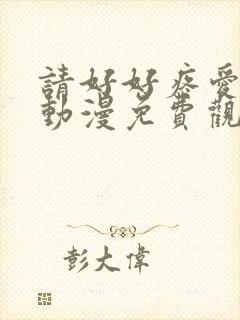 請好好疼愛
動漫免費觀
彭大偉